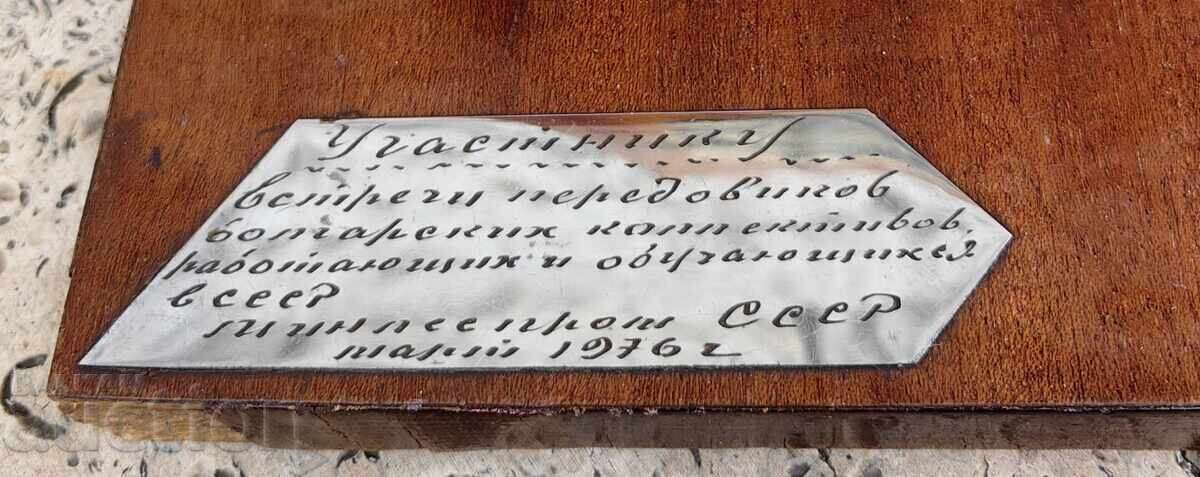 Участнику
встречи передовиков
болгарских коллективов,
работающих и обучающихся
в СССР
Минлеспром СССР
1976 г